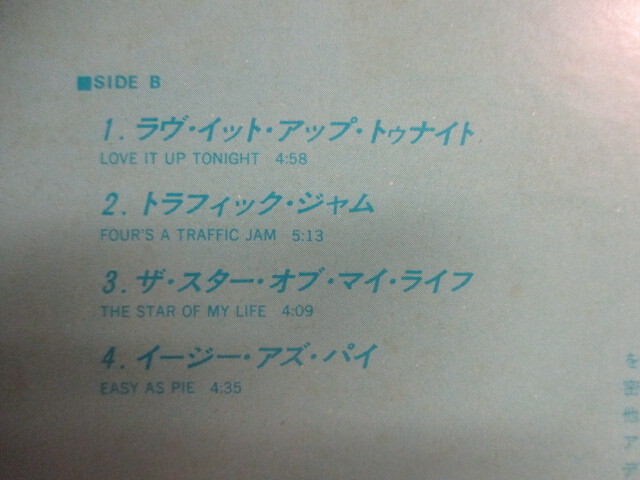 ■SIDE B
1. ラヴ・イット・アップ・トゥナイト
LOVE IT UP TONIGHT 4:58
2. トラフィック・ジャム
FOUR'S A TRAFFIC JAM 5:13
3. ザ・スター・オブ・マイ・ライフ
THE STAR OF MY LIFE 4:09
4. イージー・アズ・パイ
EASY AS PIE 4:35